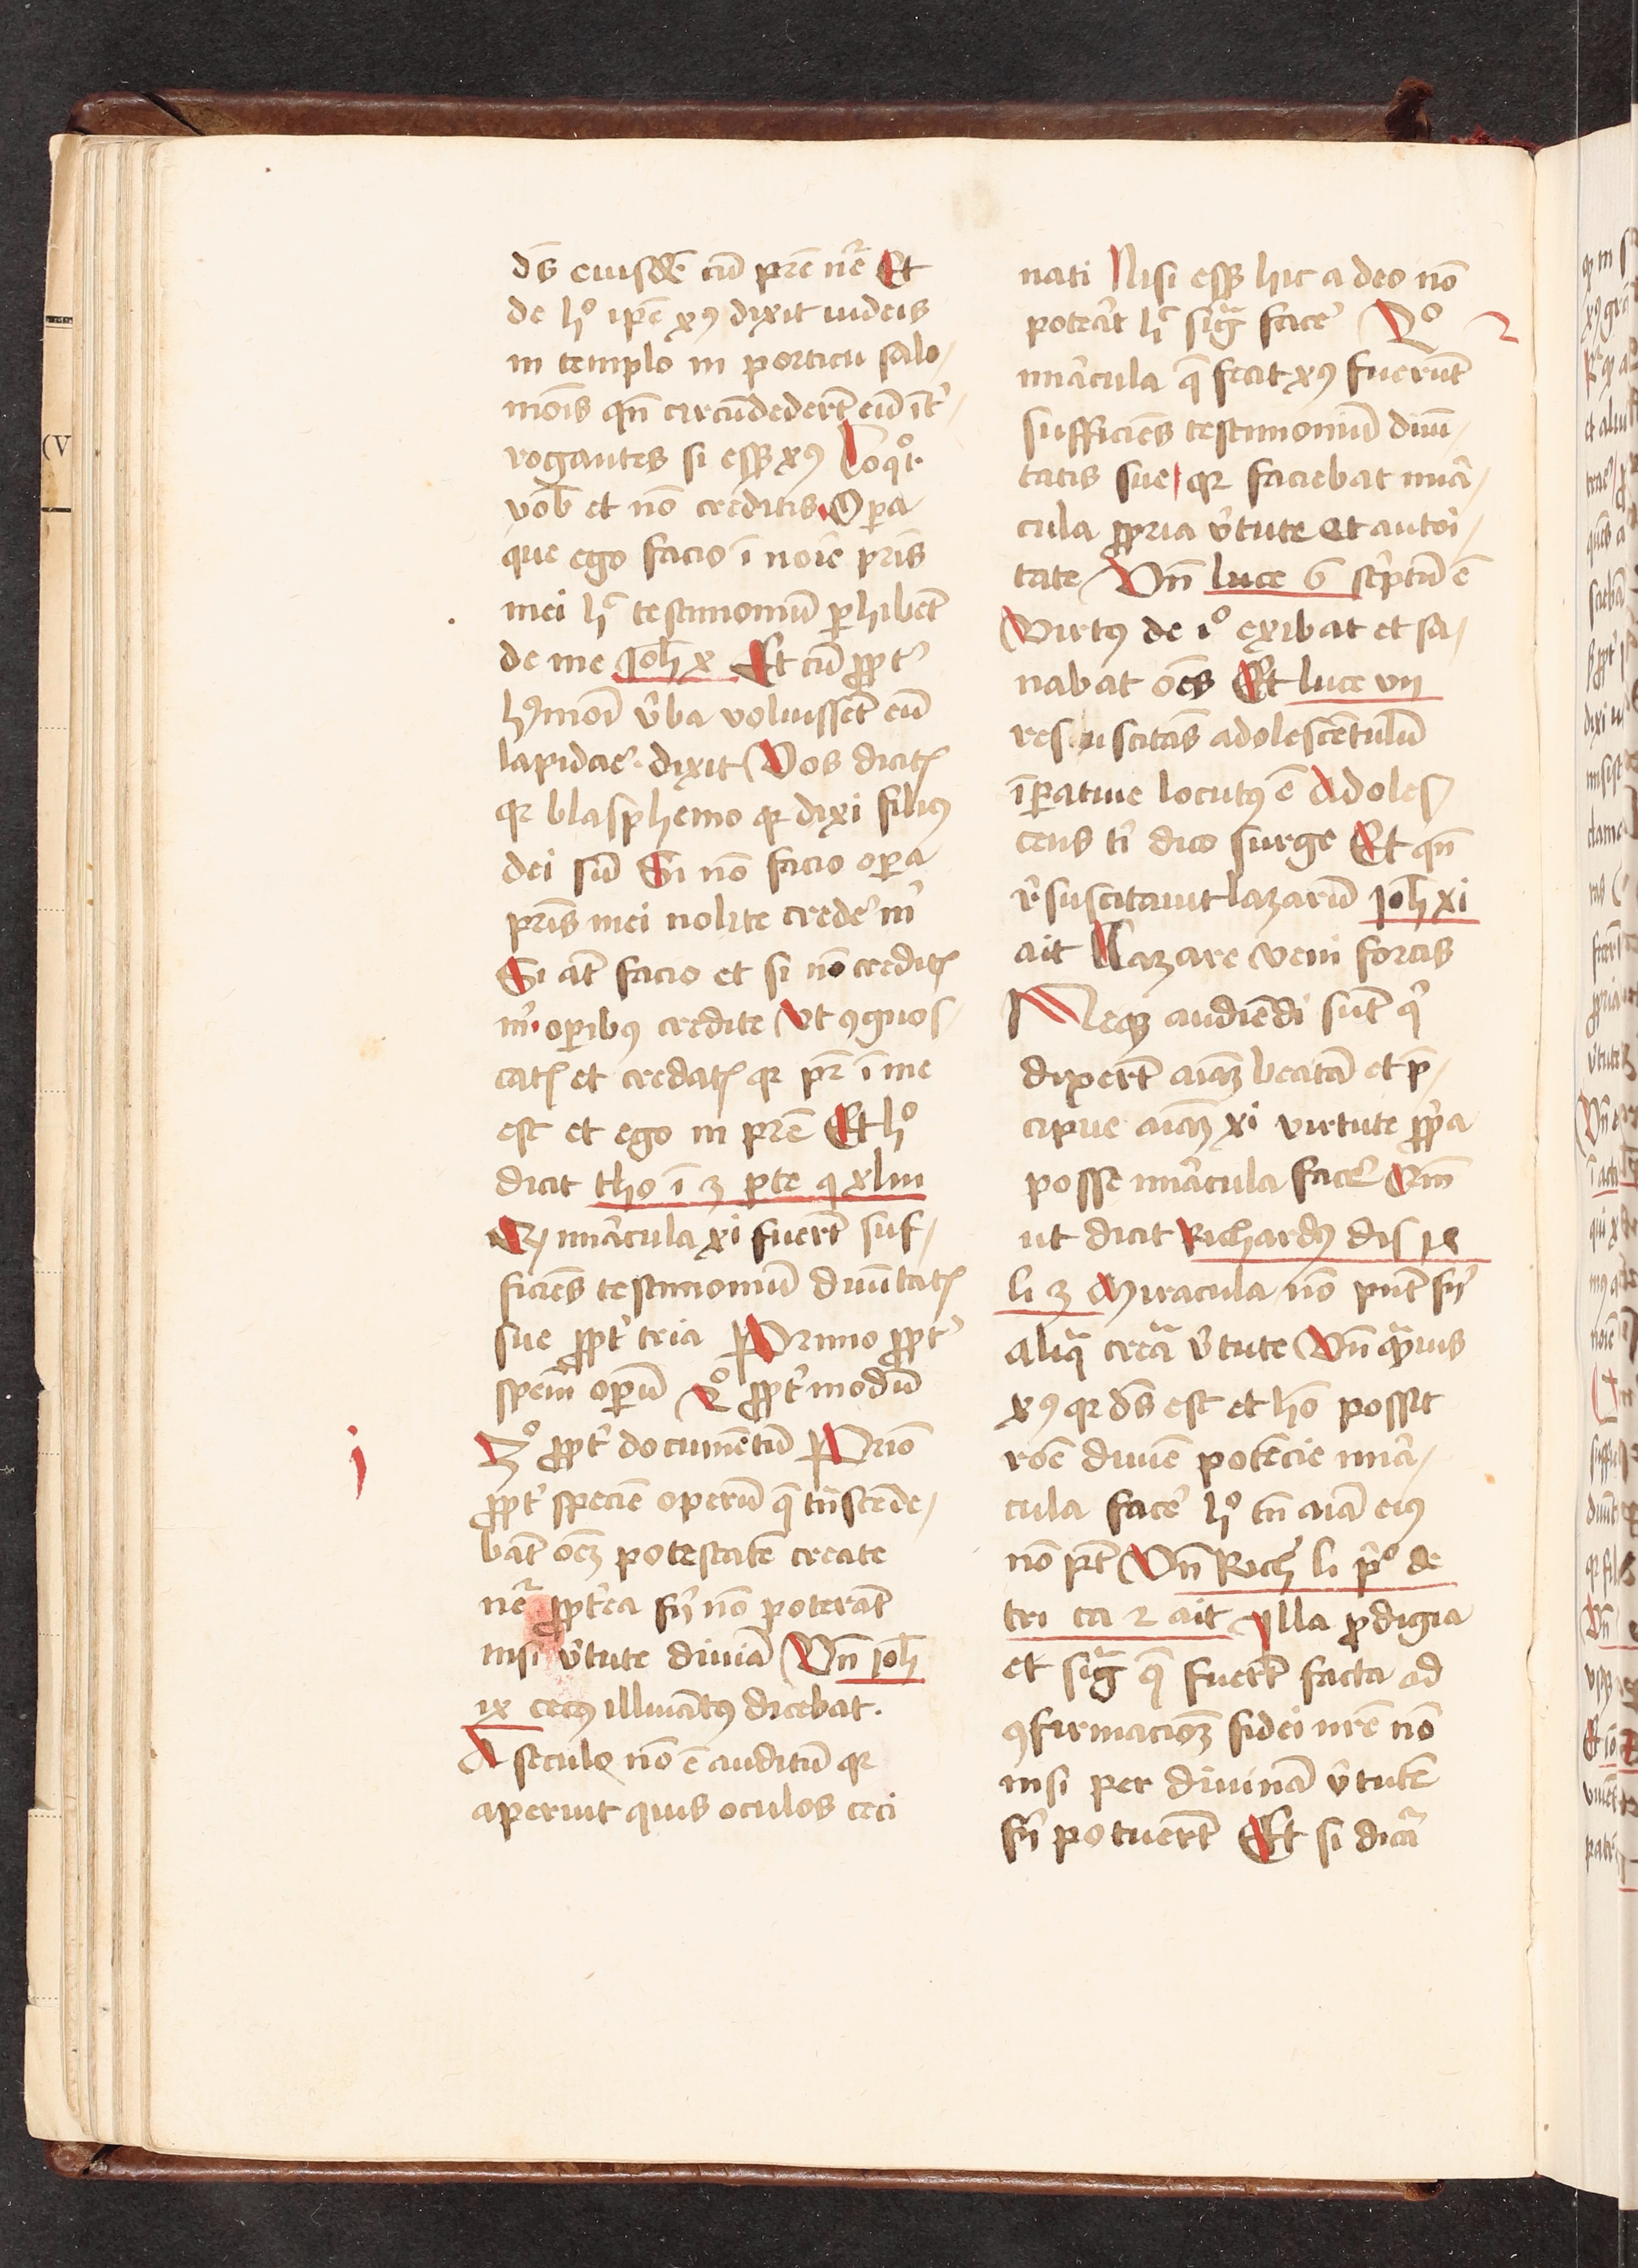 ds̄ eiusdē cū pr̄e nr̄e Et
de hº ip̄e xꝰ dixit iudeis
in templo in porticu salo⸗
mōis qn̄ circūdederūt eū īt᷑⸗
rogantes si ess; xꝰ Loqᵒr
vob̄ et nō creditis Oꝑa
que ego facio ī noīe pr̄is
mei hͨ testimoniū ꝑhibēt
de me Joh̄ x Et cū ꝓpt᷑
hꝰmōi v̄ba voluissēt eū
lapidar᷑ · dixit Vos dicitꝭ
qꝛ blasphemo qꝛ dixi filiꝰ
dei sū Si nō facio oꝑa
pr̄is mei nolite crede᷑ m̄
Si aūt facio et si nō creditꝭ
m̄ · oꝑibꝰ credite Vt ꝯgnos⸗
catꝭ et credatꝭ qꝛ pr̄ ī me
est et ego in pr̄e Et hº
dicit tho ī 3 ꝑte q xliii
Qꝫ mīracula xi fuerūt suf⸗
ficiēs testimoniū diuītatꝭ
sue ꝓpt᷑ tria Primo ꝓpt᷑
speciē oꝑum 2º ꝓpt᷑ modū
3º ꝓpt᷑ documētū Prīo
ꝓpt᷑ speciē operū q̄ trāscēde⸗
bāt oēꝫ potestatē create
nr̄e ꝓpt᷑ea fi᷑ nō poterāt
nisi v̄tute diuīa Vn̄ Joh̄
ix cecꝰ illuīatꝰ dicebat ·
A seculo nō ē auditū qꝛ
aperuit quis oculos ceci
j
nati Nisi ess; hic a deo nō
poterāt hͨ sigͣ face᷑ 2º
2
mīracula q̄ fecit xꝰ fuerūt
sufficiēs testimoniū diuī⸗
tatis sue qꝛ faciebat mirā⸗
cula ꝓpria v̄tute et autoī⸗
tate Vn̄ luce 6 sc̄ptū ē
Virtꝰ de iº exibat et sa⸗
nabat oēs Et luce vij
resuscitās adolescētulū
īꝑatiue locutꝰ ē Adoles⸗
cens t̄ dico surge Et qn̄
r̄suscitauit lazarū Joh̄ xi
ait Lazare veni foras
Neqꝫ audiēdi sūt qͥ
dixerūt aīaꝫ beatā et p̄⸗
cipue aīaꝫ xi virtute ꝓpͥa
posse mīracula face᷑ Qm̄
ut dicit Richardꝰ dis 18
li 3 Miracula nō pn̄t fi᷑
aliqͣ creāͣ v̄tute Vn̄ qͣuis
xꝰ qꝛ ds̄ est et hō possit
rōe diuīe potēcie mirā⸗
cula face᷑ hº tn̄ aīa eiꝰ
nō pōt Vn̄ Rich̄ li pͥº de
tri ca 2 ait Illa ꝓdigia
et sigͣ q̄ fuerūt facta ad
ꝯfirmacioēꝫ fidei nr̄e nō
nisi per diuinā v̄tutē
fi᷑ potuerūt Et si dicāͬ